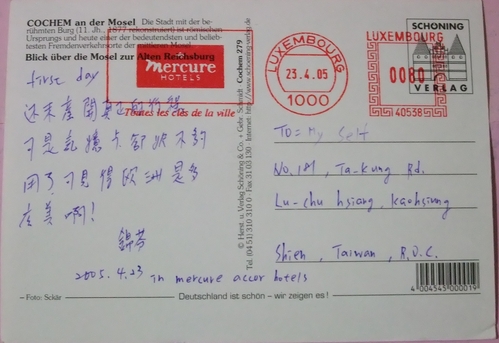 COCHEM an der Mosel Die Stadt mit der be-
rühmten Burg (11. Jh., 1877 rekonstruiert) ist römischen
Ursprungs und heute einer der bedeutendsten und beliebtesten Fremdenverkehrsorte der mittleren Mosel
Blick über die Mosel zur Alten Reichsburg
mercure
HOTELS
Toutes les clés de la ville
LUXEMBOURG
23.4.05
1000
LUXEMBOURG
0080
40558
SCHÖNING
VERLAG
first day
还未離開真正的行程
可是記憶卡卻快不夠
用了可見得歐洲是多
麼美啊!
錦芬
2005.4.23 in mercure accor hotels
© Herst. u. Verlag Schöning & Co. + Gebr. Schmidt · Cochem 279
Tel. (04 51) 310 31 0 · Fax 31 03 130 · Internet: http://www.schoening-verlag.de
TO= My Self
No.181, Ta-kung Rd.
Lu-chu hsiang, Kaohsiung
Shien, Taiwan, R.O.C.
4 004545 000019
– Foto: Sckär
Deutschland ist schön – wir zeigen es!